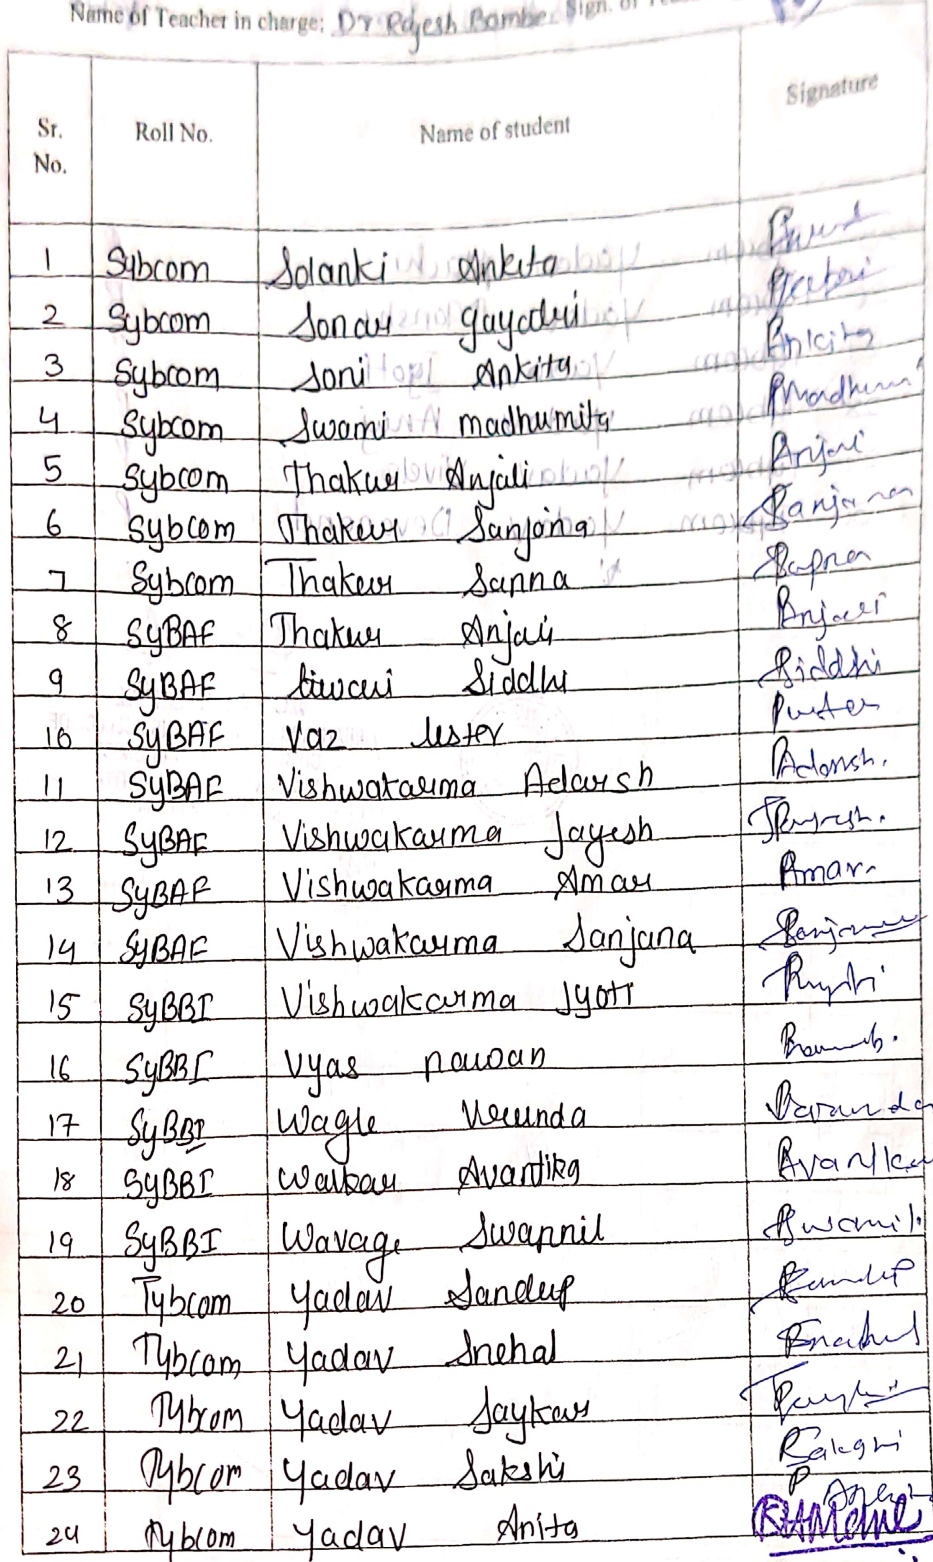 Name of Teacher in charge: Dr Rajesh Bambe Sign. of
Sr. No. Roll No. Name of student Signature
1 Sybcom Solanki Ankita
2 Sybcom Sonar gayatri
3 Sybcom Soni Ankita Ankita
4 Sybcom Swami madhumita Madhumi
5 Sybcom Thakur Anjali Anjali
6 Sybcom Thakur Sanjana Sanjana
7 Sybcom Thakur Sapna Sapna
8 SyBAF Thakur Anjali Anjali
9 SyBAF tiwari Siddhi Siddhi
10 SyBAF Vaz lester
11 SyBAF Vishwakarma Adarsh Adarsh.
12 SyBAF Vishwakarma Jayesh
13 SyBAF Vishwakarma Amar Amar
14 SyBAF Vishwakarma Sanjana Sanjana
15 SyBBI Vishwakarma Jyoti
16 SyBBI Vyas pawan
17 SyBBI Wagle Vrunda
18 SyBBI Walkar Avantika Avantika
19 SyBBI Wavage Swapnil
20 Tybcom Yadav Sandeep
21 Tybcom Yadav Snehal
22 Tybcom Yadav Jaykar
23 Tybcom Yadav Sakshi
24 Tybcom Yadav Anita